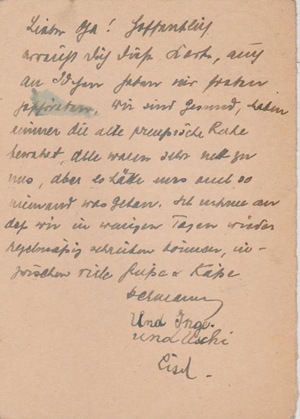 Lieber Ga! Hoffentlich
erreicht Dich diese Karte, auch
an haben wir
geschrieben. Wir sind gesund, haben
immer die alte preussische Ruhe
bewahrt, alle waren sehr nett zu
uns, aber es hätte uns auch so
niemand was getan. Ich nehme an
daß wir in wenigen Tagen wieder
regelmässig schreiben können, in-
zwischen viele Grüße & Küße
Hermann
Und Inge.
und Uschi
Lisl.